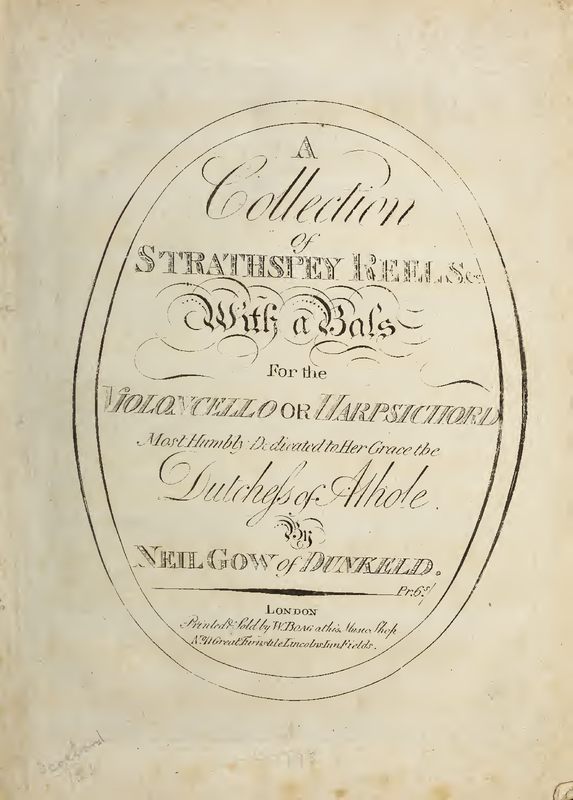 A
Collection
of
STRATHSPEY REELS &c
With a Bass
For the
VIOLONCELLO OR HARPSICHORD
Most Humbly Dedicated to Her Grace the
Dutchess of Athole.
By
NEIL GOW of DUNKELD.
Pr. 6s/
LONDON
Printed & Sold by W. BOAG at his Music Shop
No 11 Great Turnstile Lincolns Inn Fields.